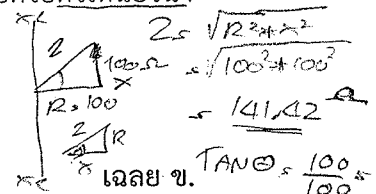 XL
Z = √R²+X²
Z
100Ω
X
= √100²+100²
R = 100
= 141.42 Ω
Z
R
X
XC
เฉลย ข. TANΘ = 100/100 =